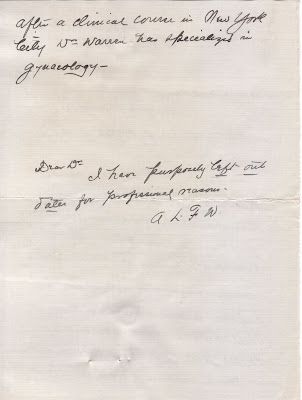 after a clinical course in New York
City Dr Warren has specialized in
gynaecology–
Dear Dr
I have purposely left out
dates for profesional reasons.
A. L. F. W.